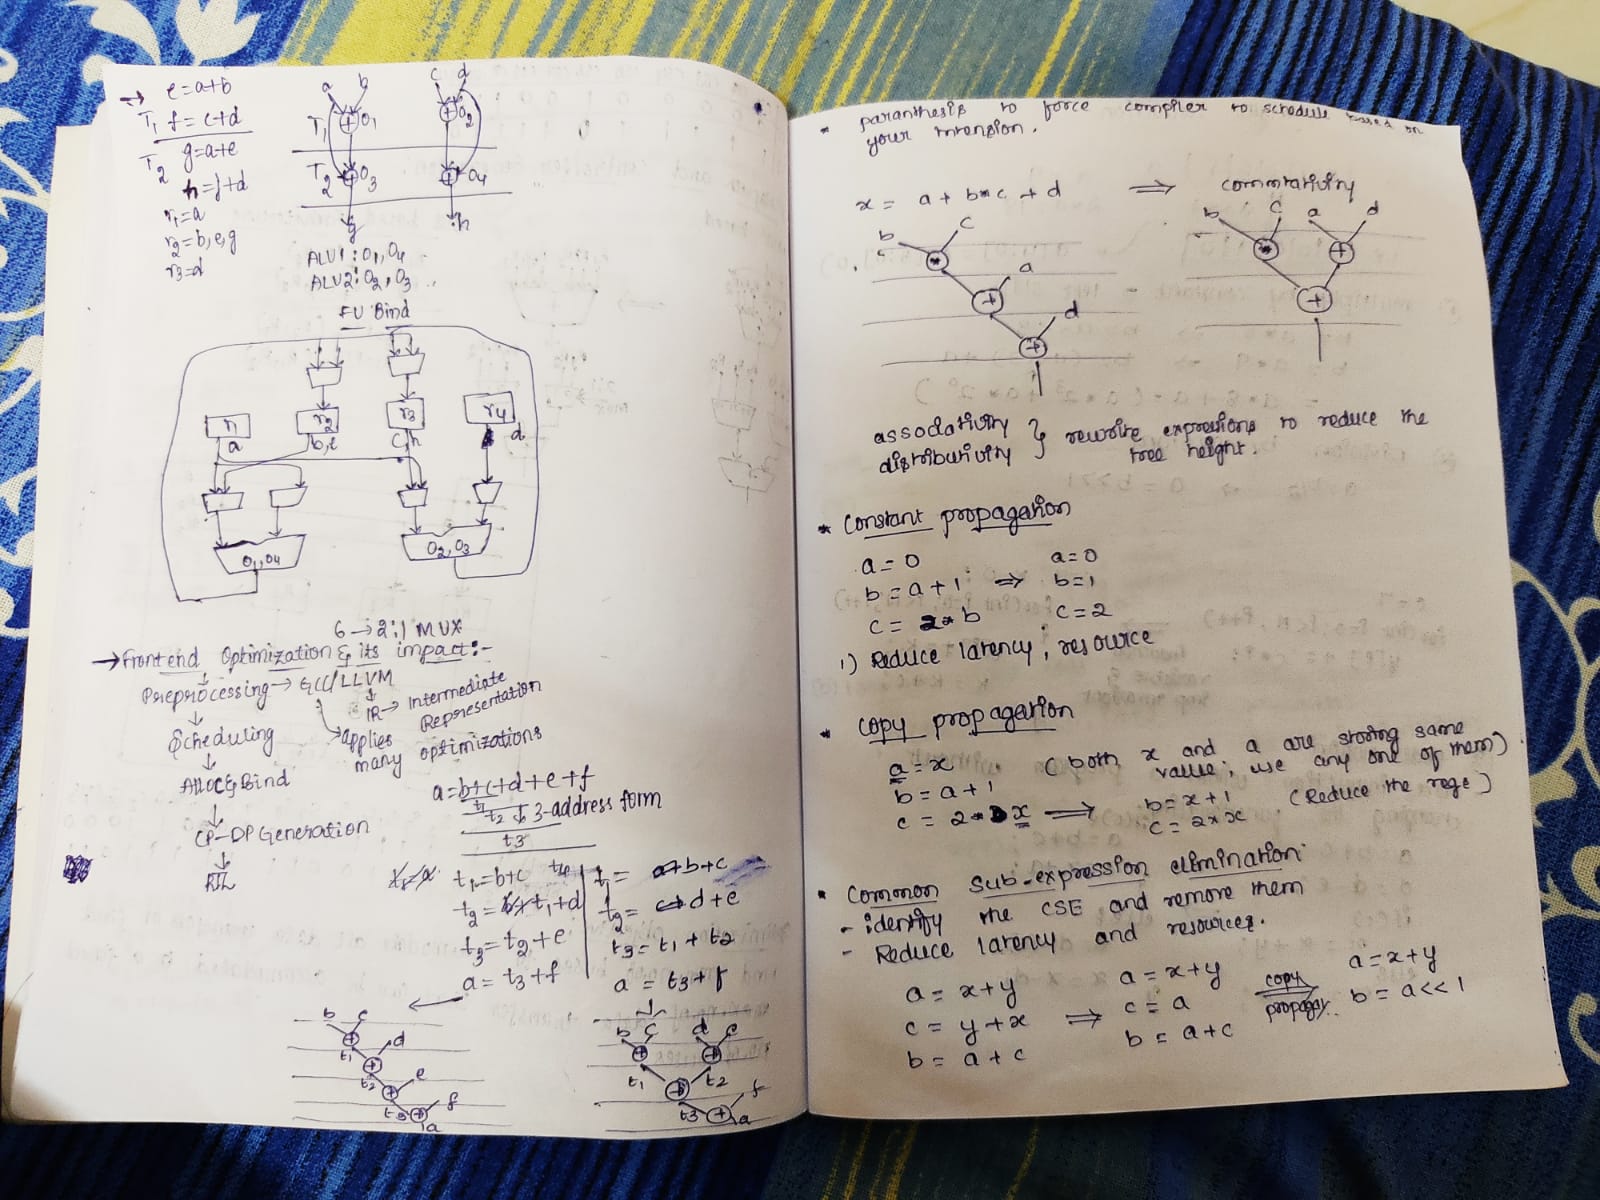 → e=a+b
T1 f=c+d
T2 g=a+e
h=f+d
r1=a
r2=b,e,g
r3=d
a b c d
T1 + O1 + O2
T2 + O3 + O4
g h
ALU1: O1, O4
ALU2: O2, O3
FU Bind
r1 r2 r3 r4
a b,e c,h d
O1, O4 O2, O3
6 → 2:1 MUX
→ Frontend Optimization & its impact:-
Preprocessing → GCC/LLVM
↓ IR → Intermediate Representation
Scheduling → applies many optimizations
↓
Alloc & Bind
↓
CP-DP Generation
↓
RTL
a=b+c+d+e+f
t1
t2 ↓ 3-address form
t3
t1=b+c
t2=t1+d
t3=t2+e
a=t3+f
t1= b+c
t2= d+e
t3= t1+t2
a = t3+f
b c
+ d
t1 + e
t2 + f
t3 + a
b c d e
+ +
t1 + t2 f
t3 + a
* paranthesis to force compiler to schedule based on
your intension.
x = a + b*c + d ⇒ commtativity
b c
* a
+ d
+
b c a d
* +
+
associativity
distributivity } rewrite expressions to reduce the
tree height.
* Constant propagation
a=0 a=0
b=a+1 ⇒ b=1
c= 2*b c=2
1) Reduce latency; resource
* Copy propagation
a=x ( both x and a are storing same
value; use any one of them)
b=a+1
c = 2*x ⇒ b=x+1 (Reduce the regs)
c=2*x
* Common sub-expression elimination:
- identify the CSE and remove them
- Reduce latency and resources.
a = x+y a = x+y copy a=x+y
c = y+x ⇒ c = a propagan.. b = a<<1
b = a+c b = a+c